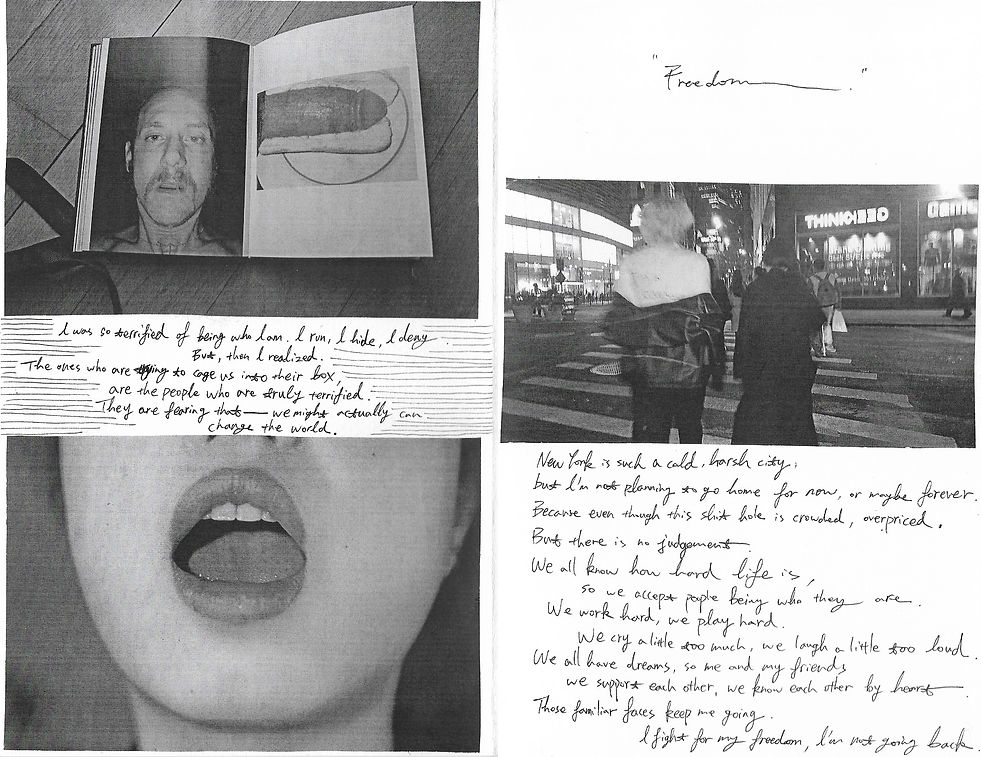 I was so terrified of being who I am. I run, I hide, I deny.
But, then I realized.
The ones who are trying to cage us into their box,
are the people who are truly terrified.
They are fearing that — we might actually can
change the world.
"Freedom."
THINK
GAME
New York is such a cold, harsh city,
but I'm not planning to go home for now, or maybe forever.
Because even though this shit hole is crowded, overpriced.
But there is no judgement.
We all know how hard life is,
so we accept people being who they are.
We work hard, we play hard.
We cry a little too much, we laugh a little too loud.
We all have dreams, so me and my friends
we support each other, we know each other by heart.
Those familiar faces keep me going.
I fight for my freedom, I'm not going back.